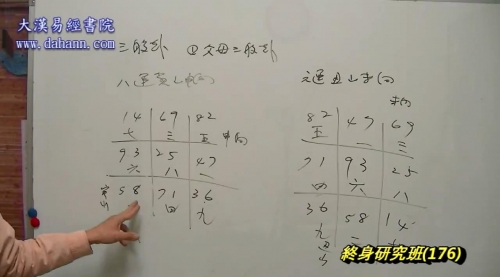 大漢易經書院
www.dahann.com
三般卦 ①父母三般卦
八運寅山申向
14 69 82
七 三 五 申向
93 25 47
六 八 一
寅山 58 71 36
四 九
六運丑山未向
未向
82 47 69
五 一 三
71 93 25
四 六 八
36 58 14
九
丑山
終身研究班(176)